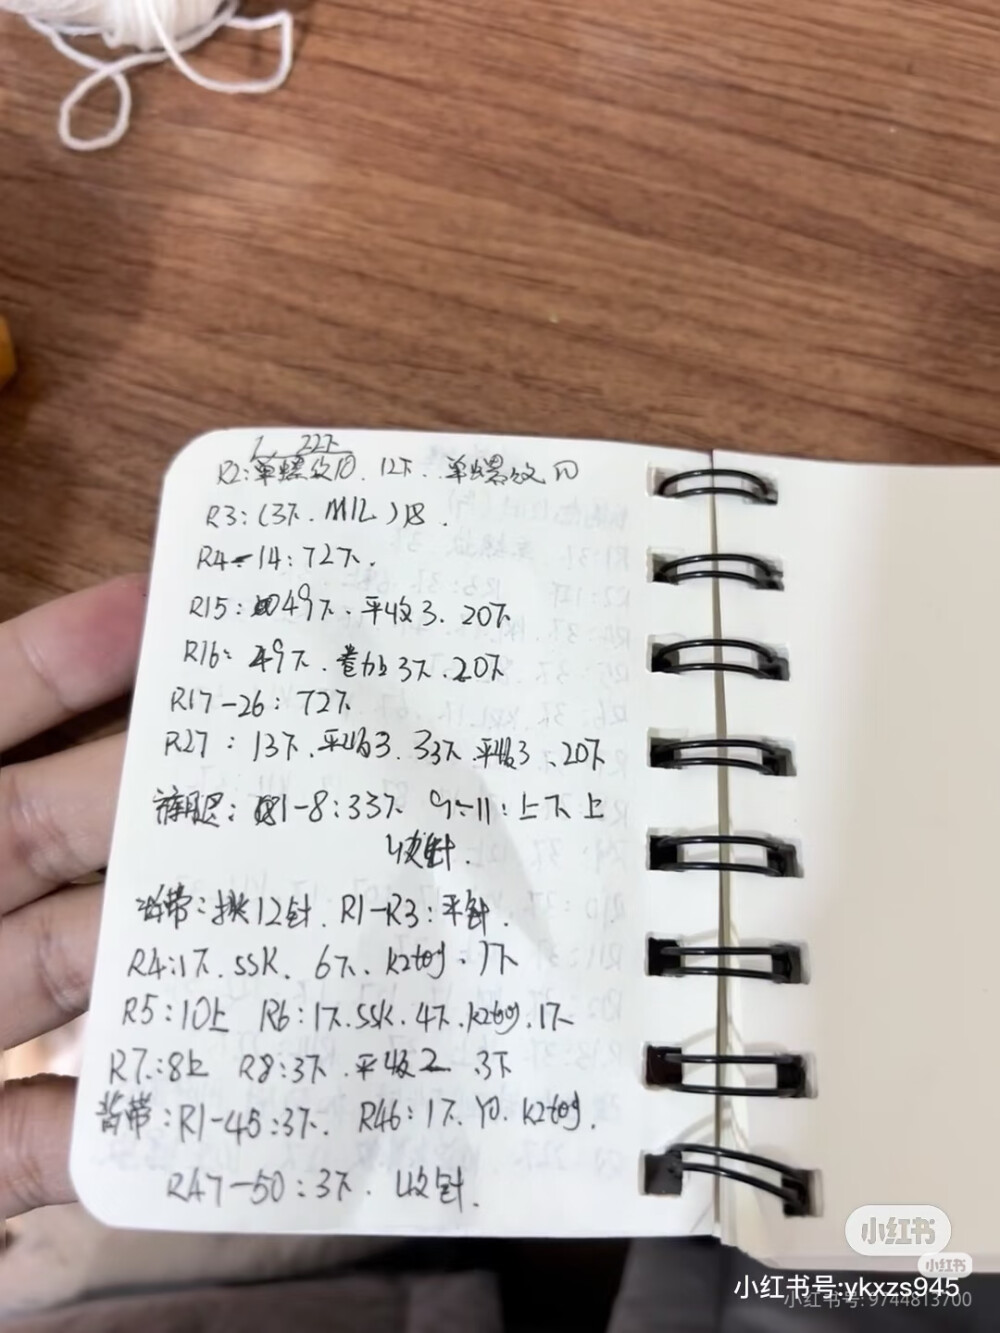 1、22下
R2:单螺纹10.12下.单螺纹10
R3:(3下.M1L)18.
R4-14:72下.
R15:49下.平收3.20下
R16:49下.卷加3下.20下
R17-26:72下
R27:13下.平收3.33下.平收3.20下
裤腿:1-8:33下 9-11:上下上
收针.
背带:挑12针.R1-R3:平针.
R4:1下.SSK.6下.k2tog.1下
R5:10上 R6:1下.SSK.4下.k2tog.1下
R7:8上 R8:3下.平收2.3下
背带:R1-45:3下. R46:1下.YO.k2tog.
R47-50:3下.收针.
小红书
小红书
小红书号:ykxzs945
小红书号:9744813700